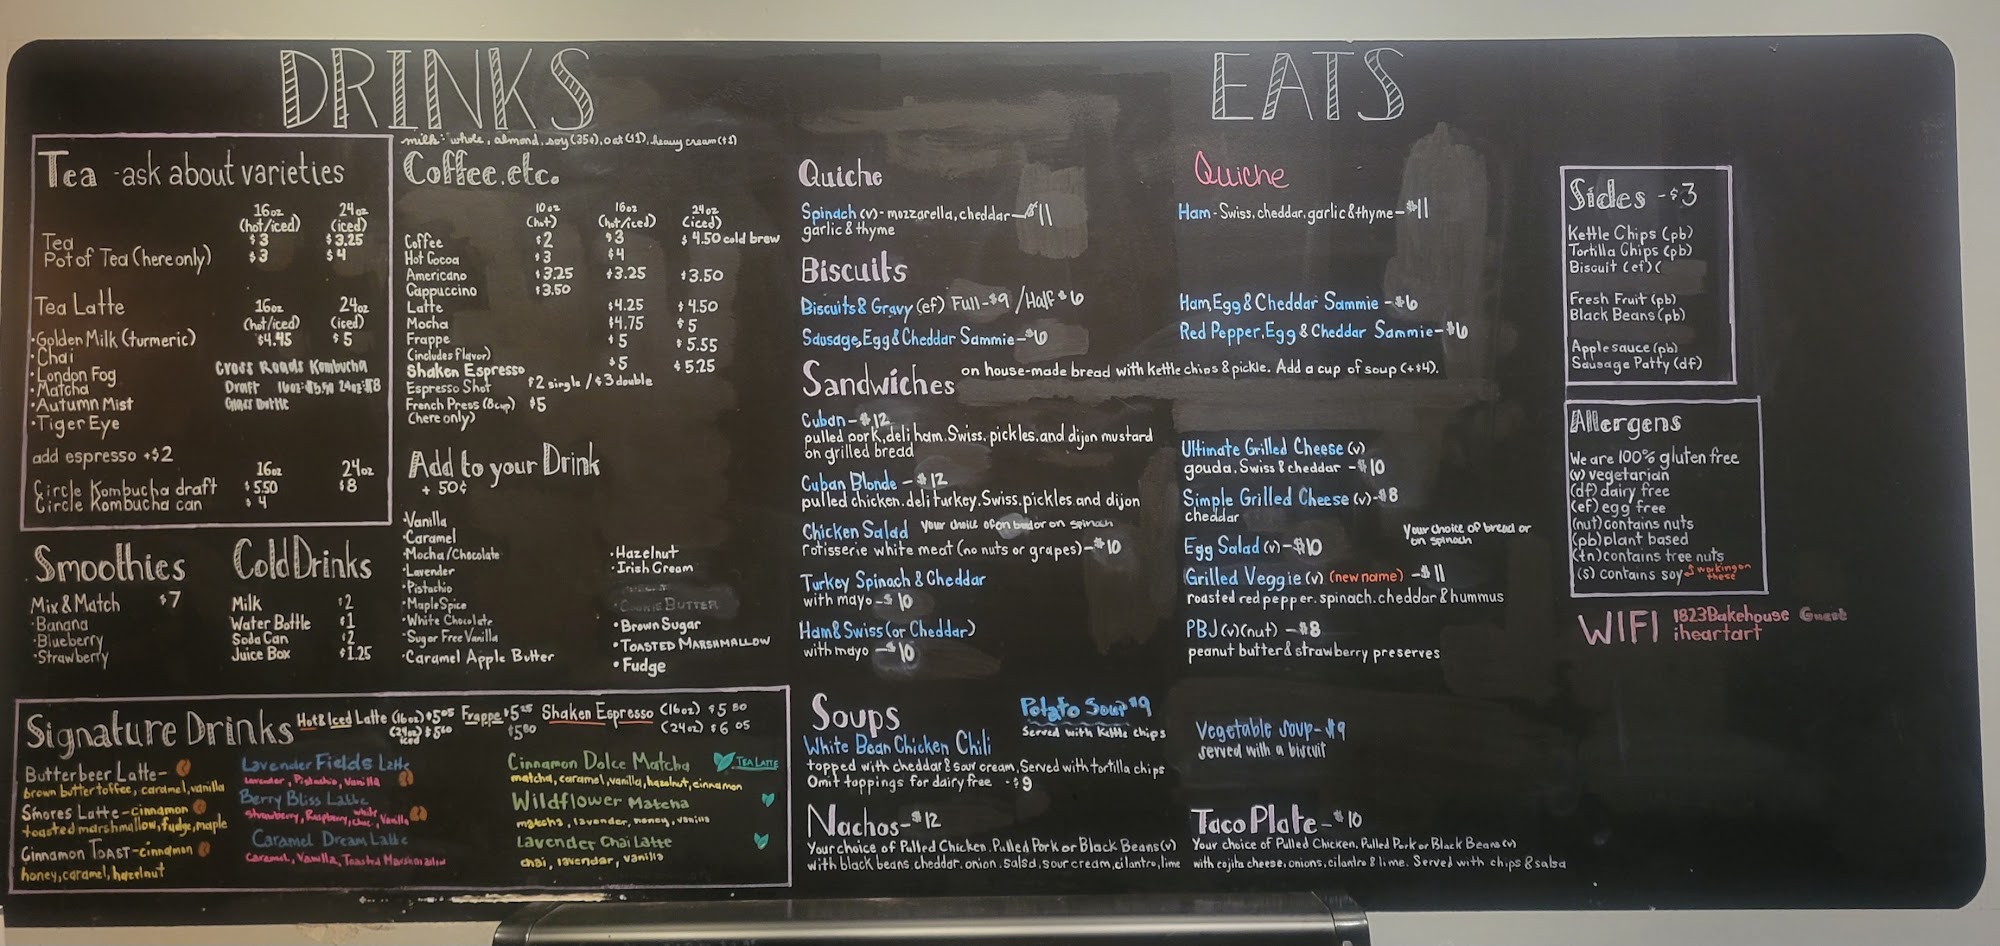 DRINKS
milk: whole, almond, soy (35¢), oat ($1), heavy cream ($1)
Tea -ask about varieties
16oz (hot/iced) 24oz (iced)
Tea $3 $3.25
Pot of Tea (here only) $3 $4
Tea Latte 16oz (hot/iced) 24oz (iced)
·Golden Milk (turmeric) $4.45 $5
·Chai
·London Fog
·Matcha
·Autumn Mist
·Tiger Eye
Cross Roads Kombucha
Draft 16oz:$5.50 24oz:$8
Glass Bottle
add espresso +$2
16oz 24oz
Circle Kombucha draft $5.50 $8
Circle Kombucha can $4
Coffee.etc.
10oz (hot) 16oz (hot/iced) 24oz (iced)
Coffee $2 $3 $4.50 cold brew
Hot Cocoa $3 $4
Americano $3.25 $3.25 $3.50
Cappuccino $3.50
Latte $4.25 $4.50
Mocha $4.75 $5
Frappe $5 $5.55
(includes flavor)
Shaken Espresso $5 $5.25
Espresso Shot $2 single / $3 double
French Press (8cup) $5
(here only)
Add to your Drink
+ 50¢
·Vanilla
·Caramel
·Mocha/Chocolate
·Lavender
·Pistachio
·Maple Spice
·White Chocolate
·Sugar Free Vanilla
·Caramel Apple Butter
·Hazelnut
·Irish Cream
·Cookie Butter
·Brown Sugar
·Toasted Marshmallow
·Fudge
Smoothies
Mix & Match $7
·Banana
·Blueberry
·Strawberry
Cold Drinks
Milk $2
Water Bottle $1
Soda Can $2
Juice Box $1.25
Signature Drinks Hot & Iced Latte (16oz) $5.05 Frappe $5 Shaken Espresso (16oz) $5 80
(24oz) iced $5 $5 80 (24oz) $6 05
Butterbeer Latte-
brown butter toffee, caramel, vanilla
S'mores Latte-cinnamon
toasted marshmallow, fudge, maple
Cinnamon Toast-cinnamon
honey, caramel, hazelnut
Lavender Fields Latte
Lavender, Pistachio, Vanilla
Berry Bliss Latte
Strawberry, Raspberry, white choc, Vanilla
Caramel Dream Latte
Caramel, Vanilla, Toasted Marshmallow
Cinnamon Dolce Matcha Tea Latte
matcha, caramel, vanilla, hazelnut, cinnamon
Wildflower Matcha
matcha, lavender, honey, vanilla
Lavender Chai Latte
chai, lavendar, vanilla
EATS
Quiche
Spinach (v)- mozzarella, cheddar-$11
garlic & thyme
Quiche
Ham-Swiss, cheddar, garlic & thyme-$11
Biscuits
Biscuits & Gravy (ef) Full-$9 / Half $6
Sausage, Egg & Cheddar Sammie-$6
Ham, Egg & Cheddar Sammie-$6
Red Pepper, Egg & Cheddar Sammie-$6
Sandwiches on house-made bread with kettle chips & pickle. Add a cup of soup (+$4).
Cuban-$12
pulled pork, deli ham. Swiss, pickles, and dijon mustard
on grilled bread
Cuban Blonde-$12
pulled chicken, deli turkey, Swiss, pickles and dijon
Chicken Salad your choice of on bread or on spinach
rotisserie white meat (no nuts or grapes)-$10
Turkey Spinach & Cheddar
with mayo-$10
Ham & Swiss (or Cheddar)
with mayo-$10
Ultimate Grilled Cheese (v)
gouda, Swiss & cheddar-$10
Simple Grilled Cheese (v)-$8
cheddar
Egg Salad (v)-$10
your choice of bread or
on spinach
Grilled Veggie (v) (new name)-$11
roasted red pepper, spinach, cheddar & hummus
PBJ (v)(nut)-$8
peanut butter & strawberry preserves
Soups
Potato Soup $9
Served with Kettle chips
White Bean Chicken Chili
topped with cheddar & sour cream, Served with tortilla chips
Omit toppings for dairy free -$9
Vegetable soup-$9
served with a biscuit
Nachos-$12
Your choice of Pulled Chicken, Pulled Pork or Black Beans (v)
with black beans, cheddar, onion, salsa, sour cream, cilantro, lime
Taco Plate-$10
Your choice of Pulled Chicken, Pulled Pork or Black Beans (v)
with cojita cheese, onions, cilantro & lime. Served with chips & salsa
Sides -$3
Kettle Chips (pb)
Tortilla Chips (pb)
Biscuit (ef)(
Fresh Fruit (pb)
Black Beans (pb)
Applesauce (pb)
Sausage Patty (df)
Allergens
We are 100% gluten free
(v) vegetarian
(df) dairy free
(ef) egg free
(nut) contains nuts
(pb) plant based
(tn) contains tree nuts
(s) contains soy working on these
WIFI 1823Bakehouse Guest
iheartart